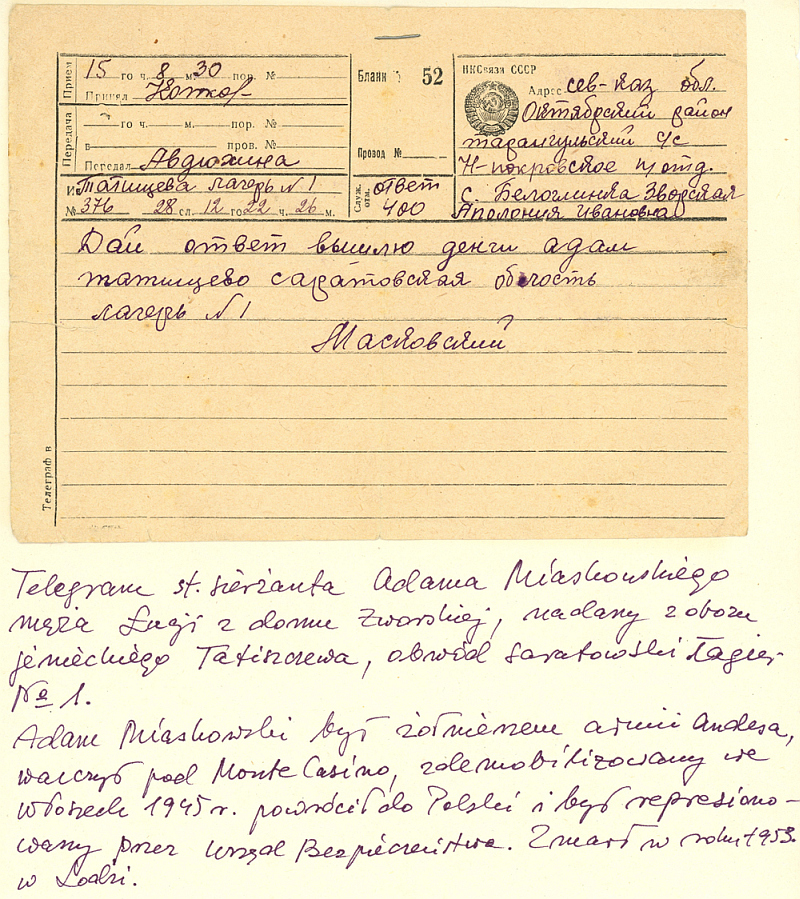 Прием
15 го ч. 8 м. 30 пор. №
Принял Котков
Передача
го ч. м. пор. №
в пров. №
Передал Авдюхина
Из Татищева лагерь N 1
№ 376 28 сл. 12 го 22 ч. 26 м.
Бланк 52
Провод №
Служ. отм.
ответ
400
НКСвязи СССР
Адрес сев-каз обл.
Октябрьский район
тарангульский с/с
Н-покровское п/отд.
с. Белоглинка Зворская
Аполония Ивановна
Дай ответ вышлю денги адам
татищево саратовская область
лагерь N 1
Масковский
Телеграф в
Telegram st. sierżanta Adama Miaskowskiego
męża Łucji z domu Zworskiej, nadany z obozu
jenieckiego Tatiszczewa, obwód saratowski Łagier
No 1.
Adam Miaskowski był żołnierzem armii Andersa,
walczył pod Monte Casino, zdemobilizowany we
włoszech 1945 r. powrócił do Polski i był represjono-
wany przez Urząd Bezpieczeństwa. Zmarł w roku 1953.
w Łodzi.